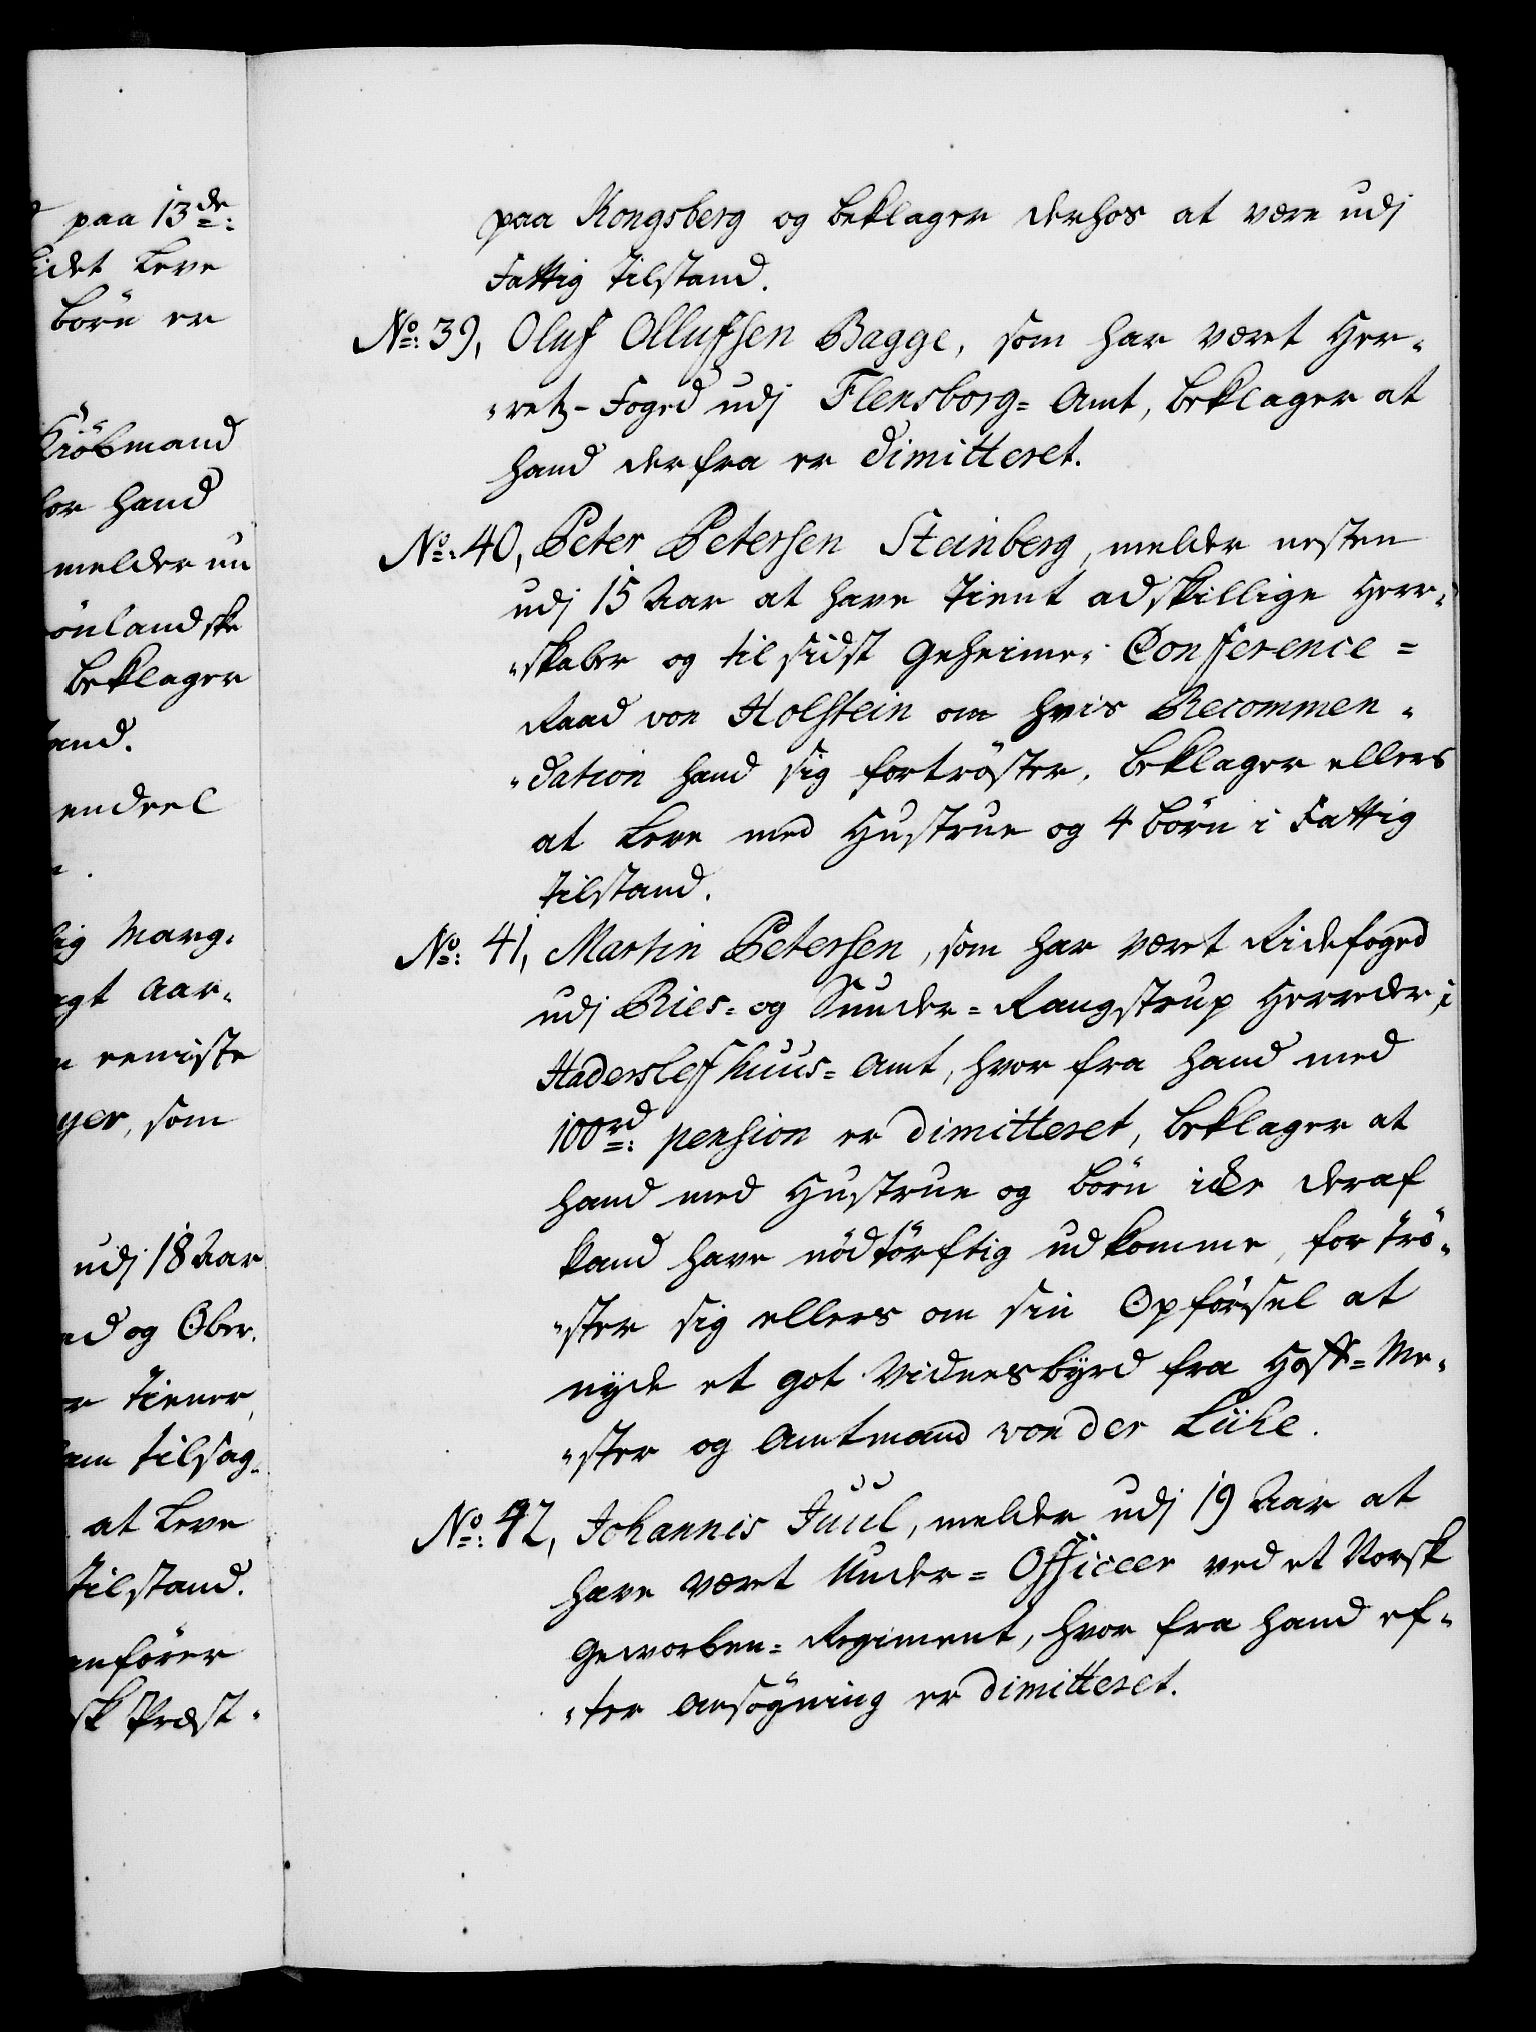 paa 13de:
idet Leve
börn er
Kiöbmand
for hand
melder nu
önlandske
beklager
tand.
endeel
lig Marg:
agt Aar-
eeniste
yer, som
udj 18 Aar
nd og Ober-
er Tiener,
ham tilsag-
at Leve
Tilstand.
anförer
sk Præst-
paa Kongsberg og beklager derhos at være udj
Fattig Tilstand.
No: 39, Oluf Ollufsen Bagge, som har været Her-
-retz-Foged udj Flensborg= Amt, beklager at
hand derfra er dimitteret.
No: 40, Peter Petersen Steinberg, melder nesten
udj 15 Aar at have Tient adskillige Herr-
-skaber og til sidst Geheime- Conference=
Raad von Holstein om hvis Recommen-
-dation hand sig fortröster, beklager ellers
at Leve med Hustrue og 4 börn i Fattig
Tilstand.
No: 41, Martin Petersen, som har været Ridefoged
udj Ries= og Sunder= Rangstrup Herreder, i
Haderslefhuus= Amt, hvor fra hand med
100rd: pension er dimitteret, beklager at
hand med Hustrue og börn icke deraf
kand have nödtörftig udkomme, fortrö-
-ster sig ellers om sin Opförsel at
nyde et got Vidnesbyrd fra Hoff= Me-
-ster og Amtmand von der Lühe.
No: 42, Johannis Juul, melder udj 19 Aar at
have været Under= Officeer ved et Norsk
Geworben= Regiment, hvor fra hand ef-
-ter ansögning er dimitteret.